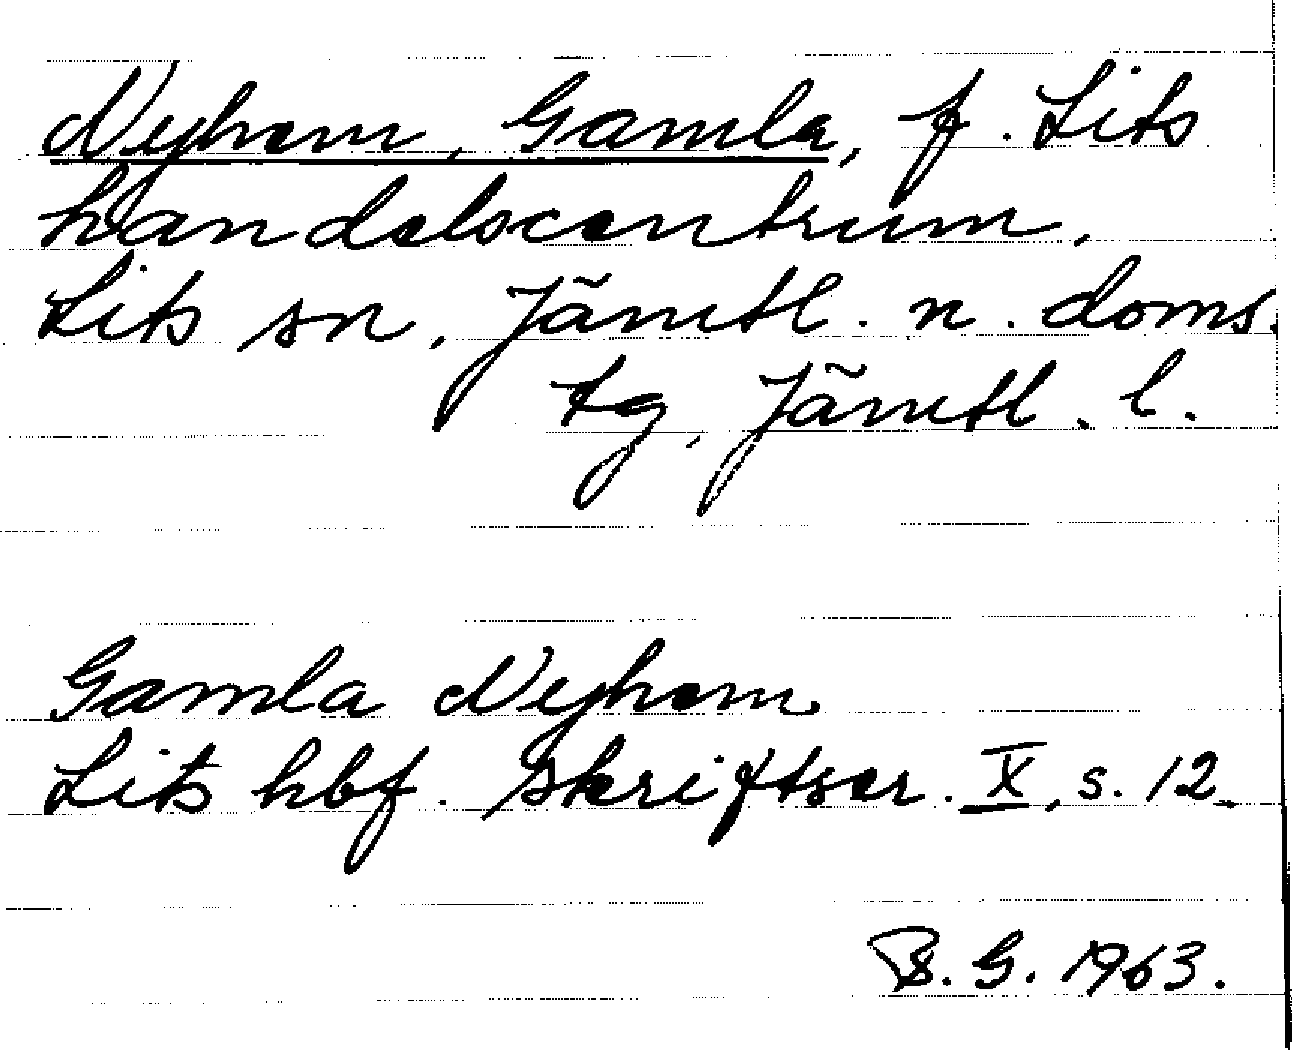 Nyhem, Gamla, f. Lits
handelscentrum.
Lits sn, Jämtl. n. doms.
tg, Jämtl. l.
Gamla Nyhem
Lits hbf. skriftser. X, s. 12.
B. G. 1963.